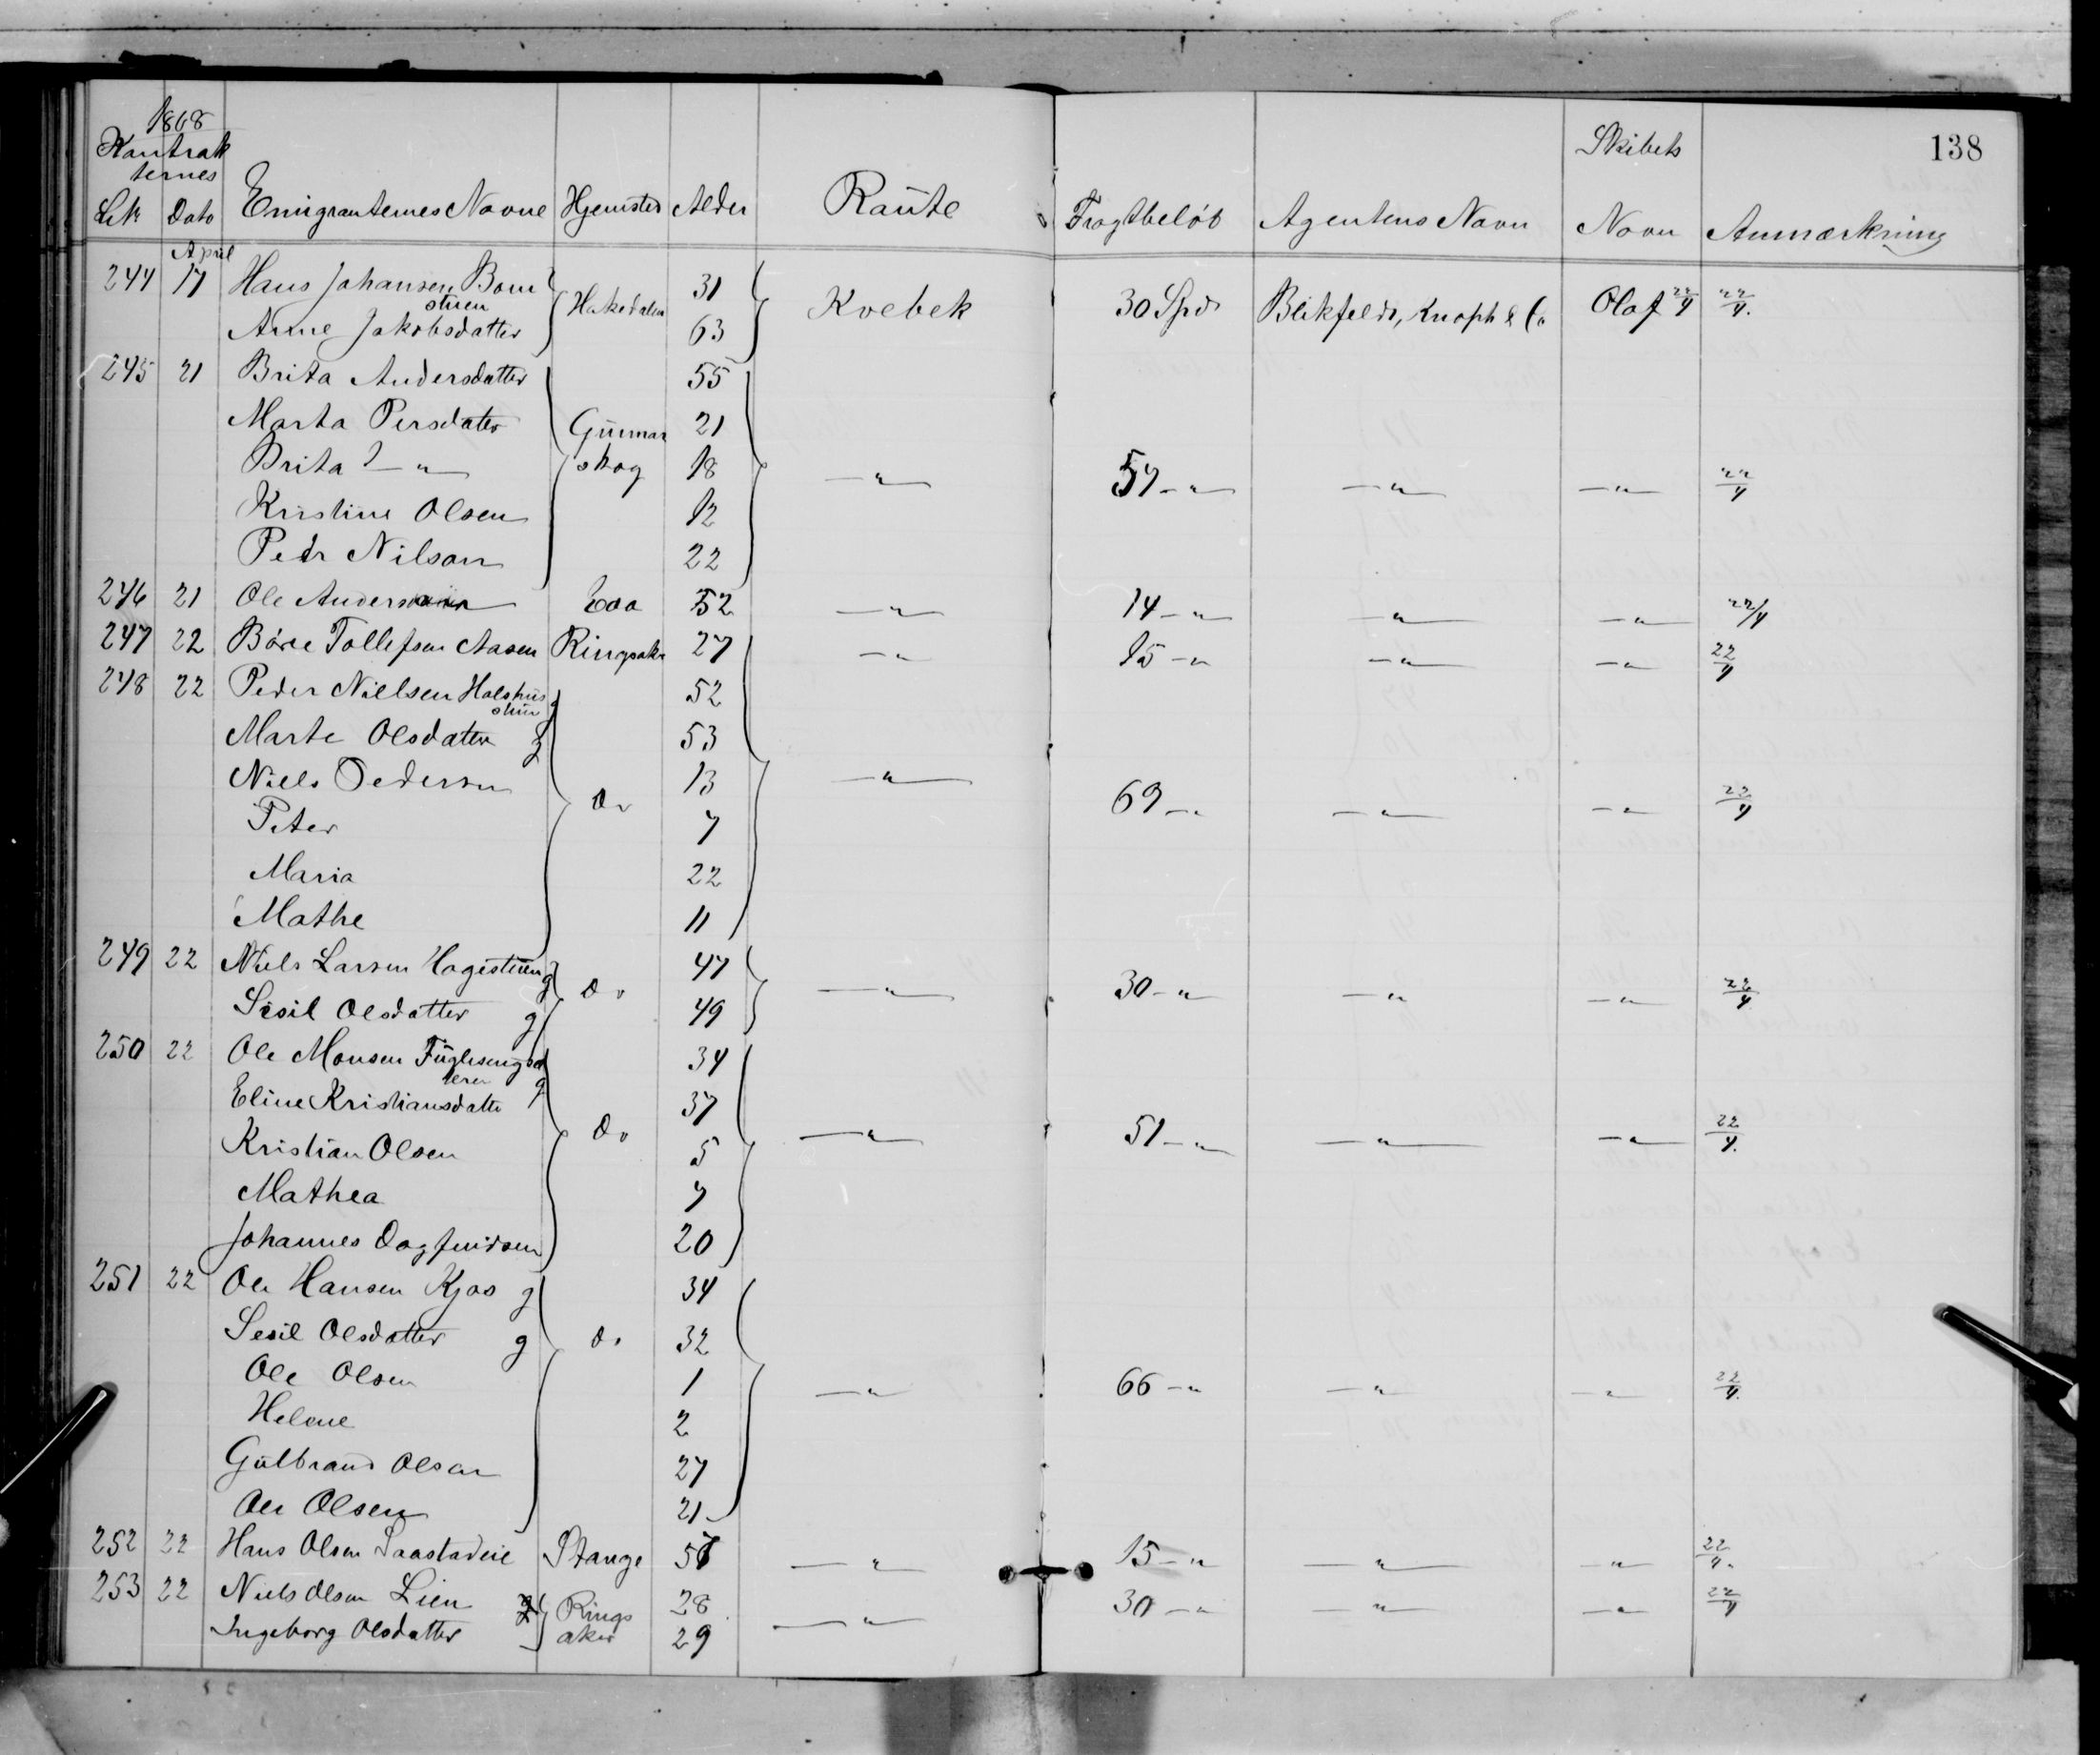 1868
Kontrak
ternes
Skibets
138
Lit. Dato Emigranternes Navne Hjemsted Alder Raute Fragtbeløb Agentens Navn Navn Anmærkning
April
244 17 Hans Johansen Bom 31
stuen Hakedalen Kvebek 30 Spd Blikfeldt, Knoph & Co Olaf 22/4 22/4.
Anne Jakobsdatter 63
245 21 Brita Andersdatter 55
Marta Persdatter Gunnar 21
Brita — " — skog 18 — " — 57 — " — — " — — " — 22/4
Kristine Olsen 12
Pedr Nilson 22
246 21 Ole Anderson Eda 52 — " — 14 — " — — " — — " — 22/4
247 22 Børe Tollefsen Aasen Ringsaker 27 — " 15 — " — " — — " — 22/4
248 22 Peder Nielsen Halshus g 52
stuen
Marte Olsdatter g 53
Niels Pedersen 13 — " —
Do 69 — " — " — — " — 22/4
Peter 7
Maria 22
Mathe 11
249 22 Niels Larsen Hagestuen g 47
Do — " — 30 — " — — " — " — 22/4
Sisil Olsdatter g 49
250 22 Ole Monsen Fuglseng 34
Eline Kristiansdatter g 37
Do — " — 51 — " — — " — — " — 22/4.
Kristian Olsen 5
Mathea 7
Johannes Dagfindsen 20
251 22 Ole Hansen Kjos g 34
Sesil Olsdatter g Do 32
Ole Olsen 1 — " — 66 — " — " — — " — 22/4.
Helene 2
Gulbrand Olsen 27
Ole Olsen 21
252 22 Hans Olsen Saastadeie Stange — " — 15 — " — — " — — " — 22/4.
253 22 Niels Olsen Lien g Rings 28 30 — " — — " — — " — 22/4
Ingeborg Olsdatter aker 29 — " —